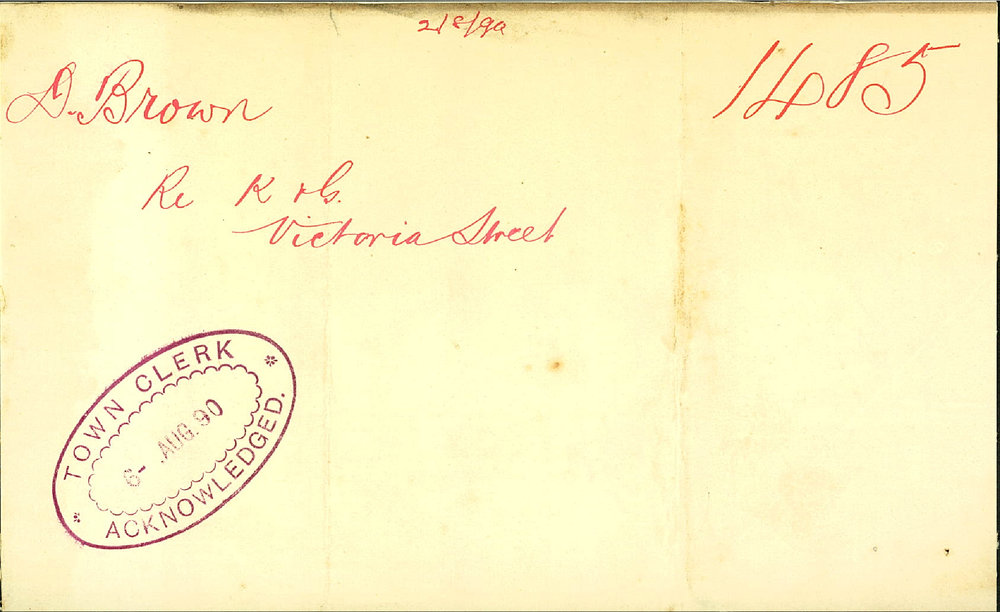 2/8/90
1485
D. Brown
Re K & G.
Victoria Street
TOWN CLERK
6- AUG. 90
ACKNOWLEDGED.